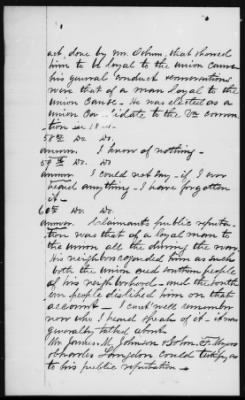 act, done by Mr. Cobun, that showed
him to be loyal to the Union cause
his general conduct conversations
were that of a man loyal to the
Union Cause - He was elected as a
Union Can idate to the Va conven
tion in 18
58th Do. Do
Answer I know of nothing -
59th Do. Do
Answer I could not say - if I ever
heard anything - I have forgotten
it -
60th Do. Do
Answer Claimants public reputa
tion was that of a loyal man to
the Union all the during the war
His neighbors regarded him as such
both the Union and southern people
of his neighborhood - and the south
ern people disliked him on that
account - I cant well remember
now who I heard speak of it - it was
generally talked about
Mr. James, M. Johnson & John, F. Myers
& Charles Langdon could testify as
to his public reputation -